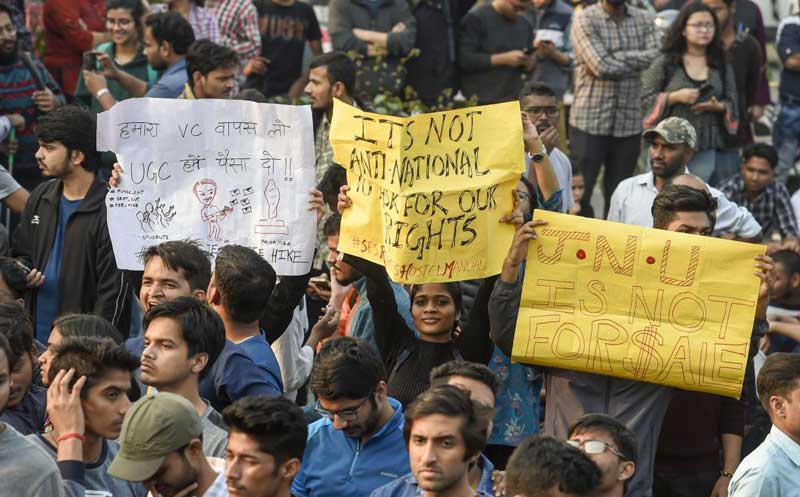 हमारा VC वापस लो
UGC हमें पैसा दो!!
STUDENTS
PRIORITIES
IT'S NOT
ANTI-NATIONAL
TO ASK FOR OUR
RIGHTS
J.N.U
IS NOT
FOR$ALE